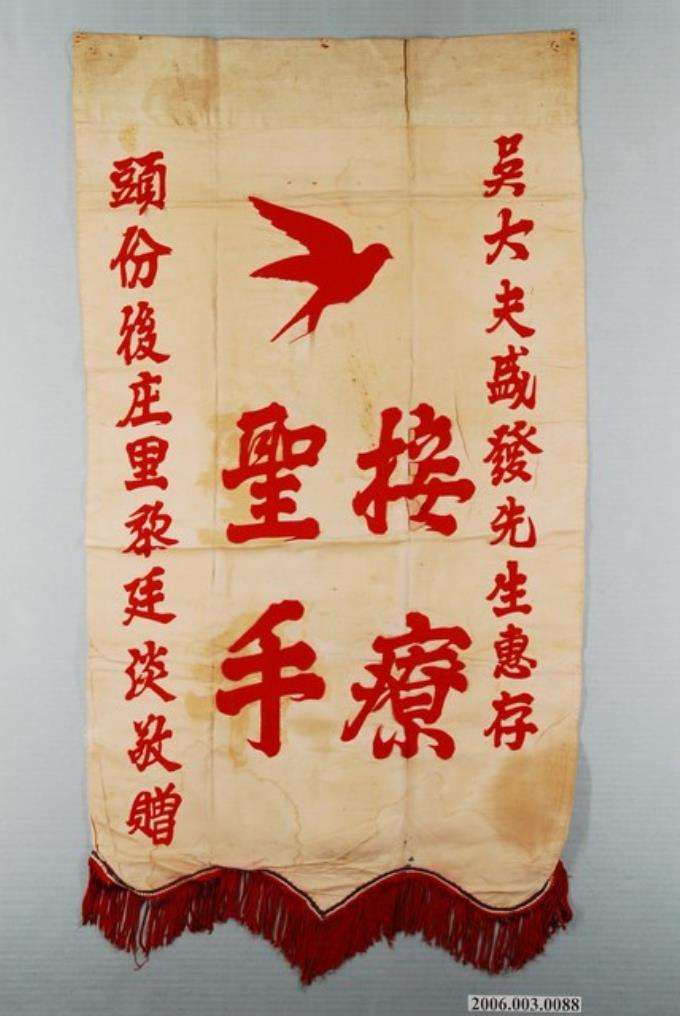 吳大夫盛發先生惠存
接療
聖手
頭份後庄里黎廷淡敬贈
2006.003.0088